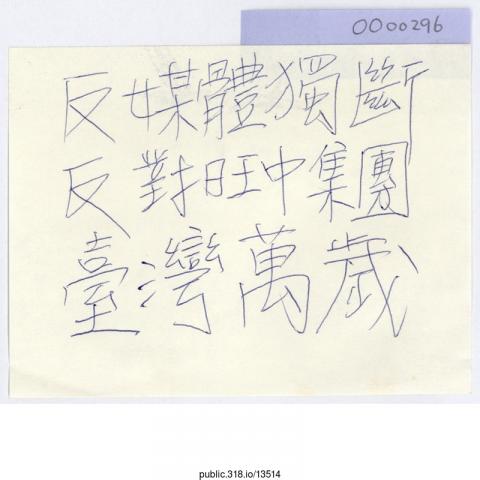 0000296
反媒體獨斷
反對旺中集團
臺灣萬歲
public.318.io/13514